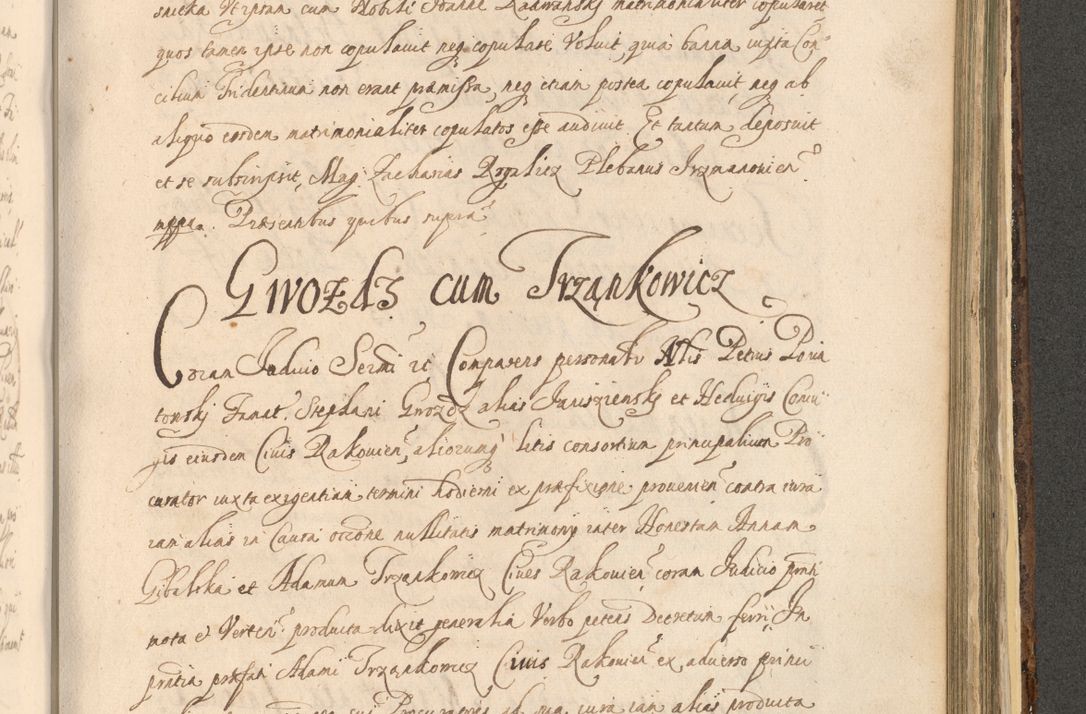 snicka Vt ipsam cum Nobili Joanne Radwansky matrimonialiter copularet
quos tamen ipse non copulauit neq copulare Voluit, quia banna iuxta Con
cilium Tridentinum non erant præmissa, neq etiam postea copulauit, neq ab
aliquo eosdem matrimonialiter copulatos esse audiuit. Et tantum deposuit
et se subscripsit, Mag. Zacharias Rogalicz Plebanus Irzmanouien
mppa. Præsentibus quibus supra
Gwozdz cum Trzankowicz
Coram Judicio Sermi et Comparens personalr Nlis Petrus Ponia
tonsky Famat. Stephani Gwozdz alias Janisziensky et Heduigis Coniu
gis eiusdem Ciuis Rakouien, aliorumq litis consortium principalium Pro
curator iuxta exigentiam termini hodierni ex præfixione prouenien contra iura
iam alias in Causa occone nullitatis matrimony inter Honestam Annam
Gibalska et Adamum Trzankowicz Ciues Rakouien coram Judicio pnti
mota et Verten producta dixit generalia Verbo petens Decretum ferri. In
pntia præfati Adami Trzankowicz Ciuis Rakouien ex aduerso princi
sui Procuratoris iura iam alias producta